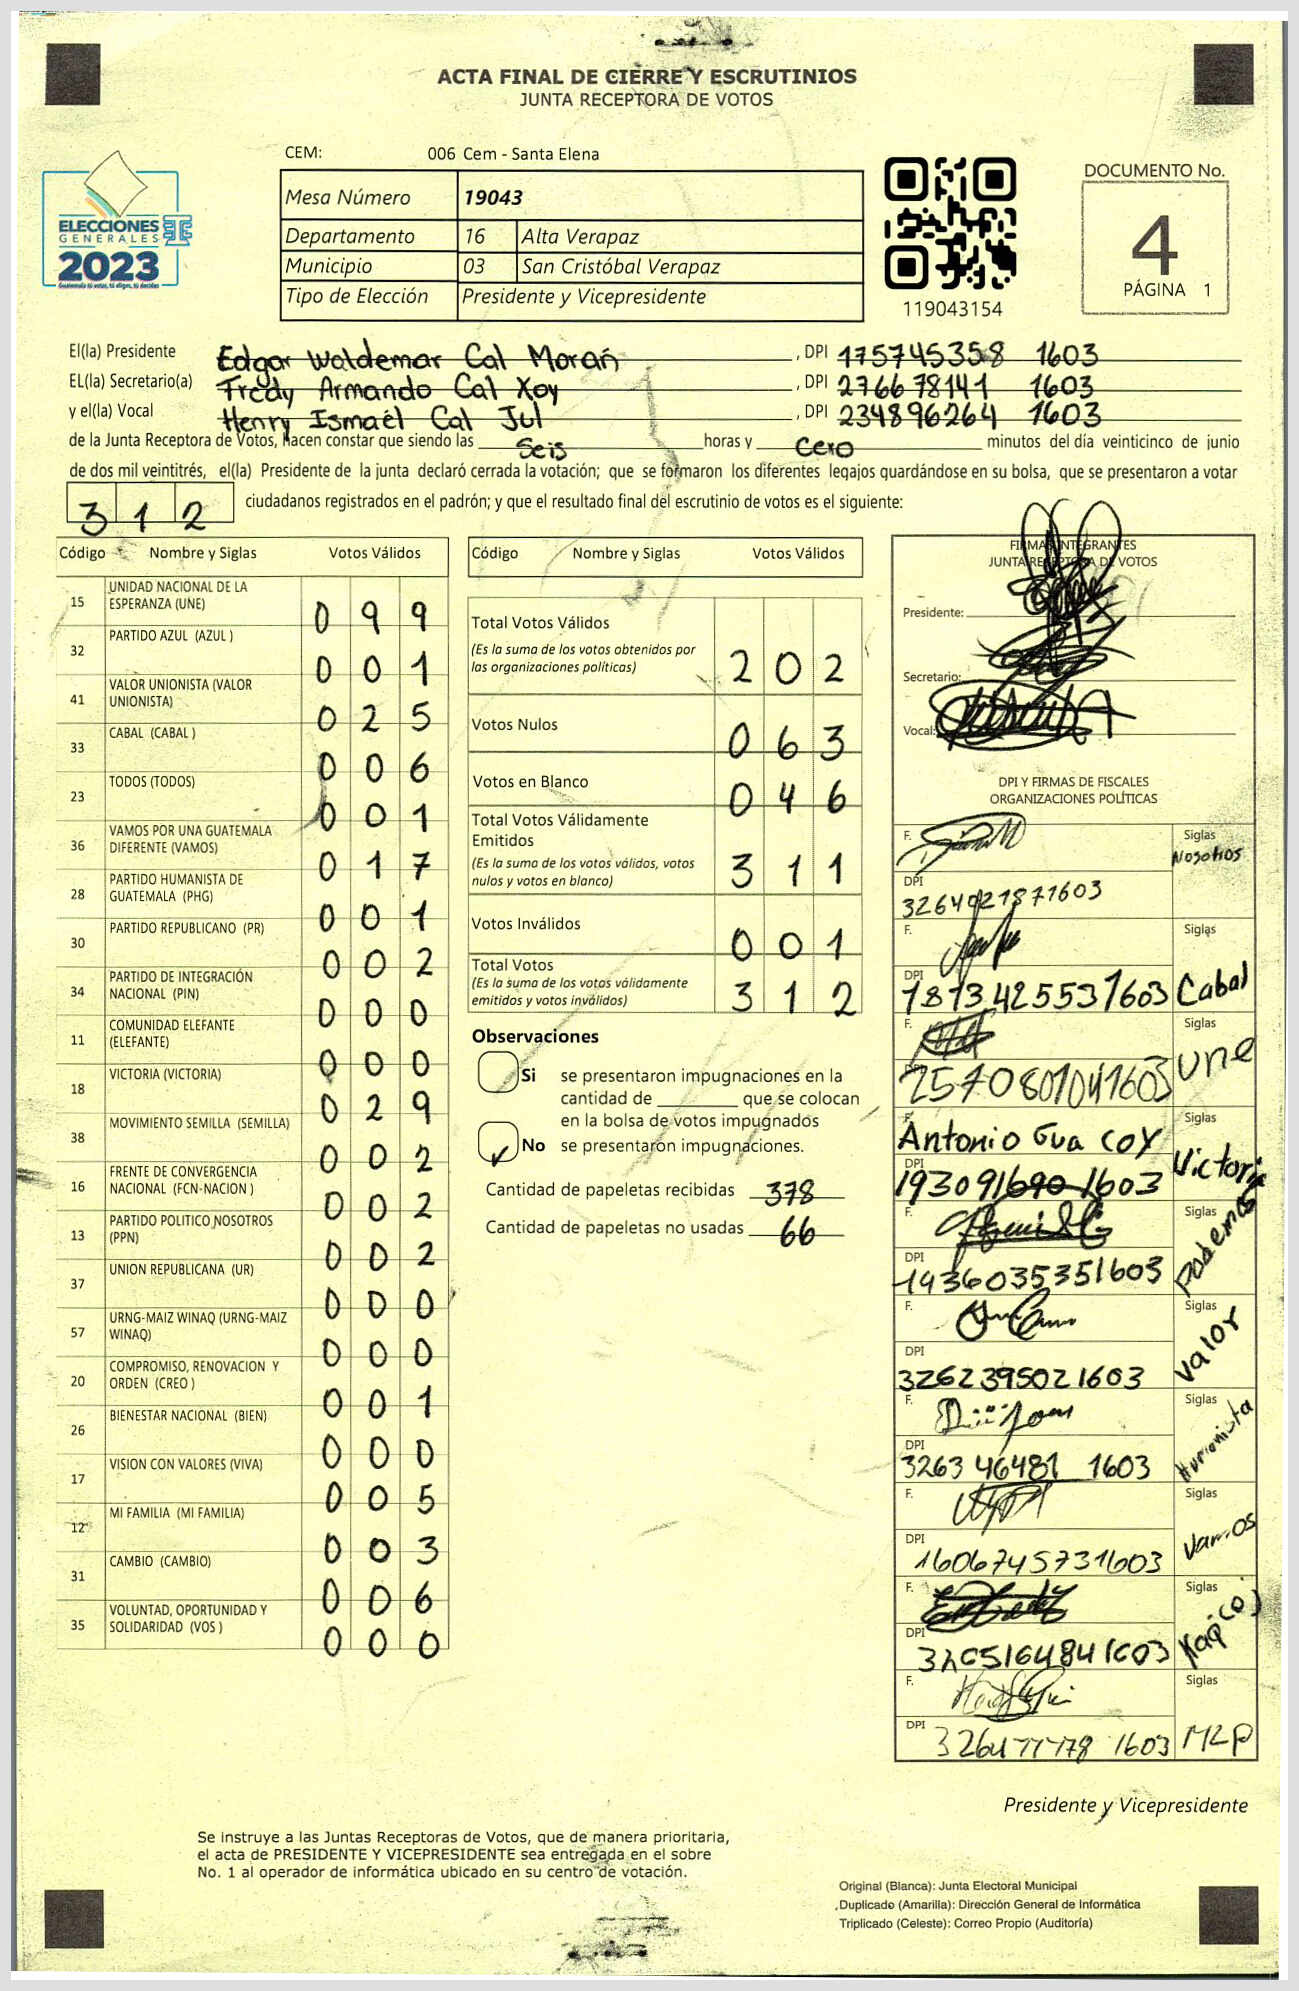 ACTA FINAL DE CIERRE Y ESCRUTINIOS
JUNTA RECEPTORA DE VOTOS
CEM: 006 Cem - Santa Elena
ELECCIONES
GENERALES
2023
Guatemala tú votas, tú eliges, tú decides
Mesa Número 19043
Departamento 16 Alta Verapaz
Municipio 03 San Cristóbal Verapaz
Tipo de Elección Presidente y Vicepresidente
119043154
DOCUMENTO No.
4
PÁGINA 1
El(la) Presidente Edgar Waldemar Cal Morán , DPI 175745358 1603
EL(la) Secretario(a) Fredy Armando Cal Xoy , DPI 276678141 1603
y el(la) Vocal Henry Ismael Cal Jul , DPI 234896264 1603
de la Junta Receptora de Votos, hacen constar que siendo las Seis horas y Cero minutos del día veinticinco de junio
de dos mil veintitrés, el(la) Presidente de la junta declaró cerrada la votación; que se formaron los diferentes legajos quardándose en su bolsa, que se presentaron a votar
312 ciudadanos registrados en el padrón; y que el resultado final del escrutinio de votos es el siguiente:
Código Nombre y Siglas Votos Válidos
15 UNIDAD NACIONAL DE LA
ESPERANZA (UNE) 099
32 PARTIDO AZUL (AZUL ) 001
41 VALOR UNIONISTA (VALOR
UNIONISTA) 025
33 CABAL (CABAL ) 006
23 TODOS (TODOS) 001
36 VAMOS POR UNA GUATEMALA
DIFERENTE (VAMOS) 017
28 PARTIDO HUMANISTA DE
GUATEMALA (PHG) 001
30 PARTIDO REPUBLICANO (PR) 002
34 PARTIDO DE INTEGRACIÓN
NACIONAL (PIN) 000
11 COMUNIDAD ELEFANTE
(ELEFANTE) 000
18 VICTORIA (VICTORIA) 029
38 MOVIMIENTO SEMILLA (SEMILLA) 002
16 FRENTE DE CONVERGENCIA
NACIONAL (FCN-NACION ) 002
13 PARTIDO POLITICO NOSOTROS
(PPN) 002
37 UNION REPUBLICANA (UR) 000
57 URNG-MAIZ WINAQ (URNG-MAIZ
WINAQ) 000
20 COMPROMISO, RENOVACION Y
ORDEN (CREO ) 001
26 BIENESTAR NACIONAL (BIEN) 000
17 VISION CON VALORES (VIVA) 005
12 MI FAMILIA (MI FAMILIA) 003
31 CAMBIO (CAMBIO) 006
35 VOLUNTAD, OPORTUNIDAD Y
SOLIDARIDAD (VOS ) 000
Código Nombre y Siglas Votos Válidos
Total Votos Válidos
(Es la suma de los votos obtenidos por
las organizaciones políticas) 202
Votos Nulos 063
Votos en Blanco 046
Total Votos Válidamente
Emitidos
(Es la suma de los votos válidos, votos
nulos y votos en blanco) 311
Votos Inválidos 001
Total Votos
(Es la suma de los votos válidamente
emitidos y votos inválidos) 312
Observaciones
Si se presentaron impugnaciones en la
cantidad de ________ que se colocan
en la bolsa de votos impugnados
No se presentaron impugnaciones.
Cantidad de papeletas recibidas 378
Cantidad de papeletas no usadas 66
FIRMAS INTEGRANTES
JUNTA RECEPTORA DE VOTOS
Presidente:
Secretario:
Vocal:
DPI Y FIRMAS DE FISCALES
ORGANIZACIONES POLÍTICAS
F. Siglas
Nosotros
DPI
3264021871603
F. Siglas
DPI
1813425531603 Cabal
F. Siglas
DPI
2570801041603 Une
F. Siglas
Antonio Gua Coy
DPI Victoria
1930916901603
F. Siglas
DPI Podemos
1436035351603
F. Siglas
DPI Valor
3262395021603
F. Siglas
DPI Humanista
326346481 1603
F. Siglas
DPI Vamos
1606745731603
F. Siglas
DPI
F. Siglas
DPI
1603 MLP
Presidente y Vicepresidente
Se instruye a las Juntas Receptoras de Votos, que de manera prioritaria,
el acta de PRESIDENTE Y VICEPRESIDENTE sea entregada en el sobre
No. 1 al operador de informática ubicado en su centro de votación.
Original (Blanca): Junta Electoral Municipal
Duplicado (Amarilla): Dirección General de Informática
Triplicado (Celeste): Correo Propio (Auditoría)